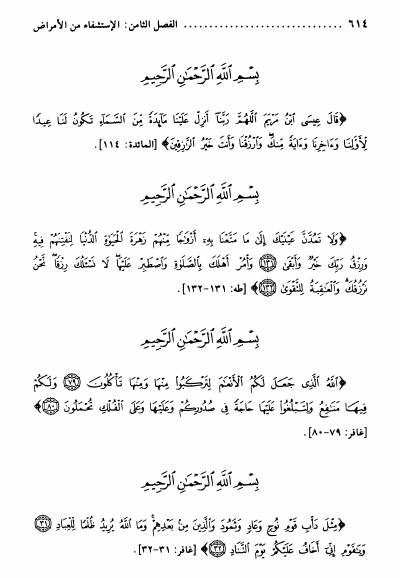 ٦١٤ ................................ الفصل الثامن: الإستشفاء من الأمراض
بِسْمِ ٱللَّهِ ٱلرَّحْمَٰنِ ٱلرَّحِيمِ
﴿قَالَ عِيسَى ٱبْنُ مَرْيَمَ ٱللَّهُمَّ رَبَّنَآ أَنزِلْ عَلَيْنَا مَآئِدَةً مِّنَ ٱلسَّمَآءِ تَكُونُ لَنَا عِيدًا
لِّأَوَّلِنَا وَءَاخِرِنَا وَءَايَةً مِّنكَ وَٱرْزُقْنَا وَأَنتَ خَيْرُ ٱلرَّٰزِقِينَ﴾ [المائدة: ١١٤].
بِسْمِ ٱللَّهِ ٱلرَّحْمَٰنِ ٱلرَّحِيمِ
﴿وَلَا تَمُدَّنَّ عَيْنَيْكَ إِلَىٰ مَا مَتَّعْنَا بِهِۦٓ أَزْوَٰجًا مِّنْهُمْ زَهْرَةَ ٱلْحَيَوٰةِ ٱلدُّنْيَا لِنَفْتِنَهُمْ فِيهِ
وَرِزْقُ رَبِّكَ خَيْرٌ وَأَبْقَىٰ ﴿١٣١﴾ وَأْمُرْ أَهْلَكَ بِٱلصَّلَوٰةِ وَٱصْطَبِرْ عَلَيْهَا لَا نَسْـَٔلُكَ رِزْقًا نَّحْنُ
نَرْزُقُكَ وَٱلْعَٰقِبَةُ لِلتَّقْوَىٰ ﴿١٣٢﴾﴾ [طه: ١٣١-١٣٢].
بِسْمِ ٱللَّهِ ٱلرَّحْمَٰنِ ٱلرَّحِيمِ
﴿ٱللَّهُ ٱلَّذِى جَعَلَ لَكُمُ ٱلْأَنْعَٰمَ لِتَرْكَبُوا۟ مِنْهَا وَمِنْهَا تَأْكُلُونَ ﴿٧٩﴾ وَلَكُمْ
فِيهَا مَنَٰفِعُ وَلِتَبْلُغُوا۟ عَلَيْهَا حَاجَةً فِى صُدُورِكُمْ وَعَلَيْهَا وَعَلَى ٱلْفُلْكِ تُحْمَلُونَ ﴿٨٠﴾﴾
[غافر: ٧٩-٨٠].
بِسْمِ ٱللَّهِ ٱلرَّحْمَٰنِ ٱلرَّحِيمِ
﴿مِثْلَ دَأْبِ قَوْمِ نُوحٍ وَعَادٍ وَثَمُودَ وَٱلَّذِينَ مِنۢ بَعْدِهِمْ وَمَا ٱللَّهُ يُرِيدُ ظُلْمًا لِّلْعِبَادِ ﴿٣١﴾
وَيَٰقَوْمِ إِنِّىٓ أَخَافُ عَلَيْكُمْ يَوْمَ ٱلتَّنَادِ ﴿٣٢﴾﴾ [غافر: ٣١-٣٢].